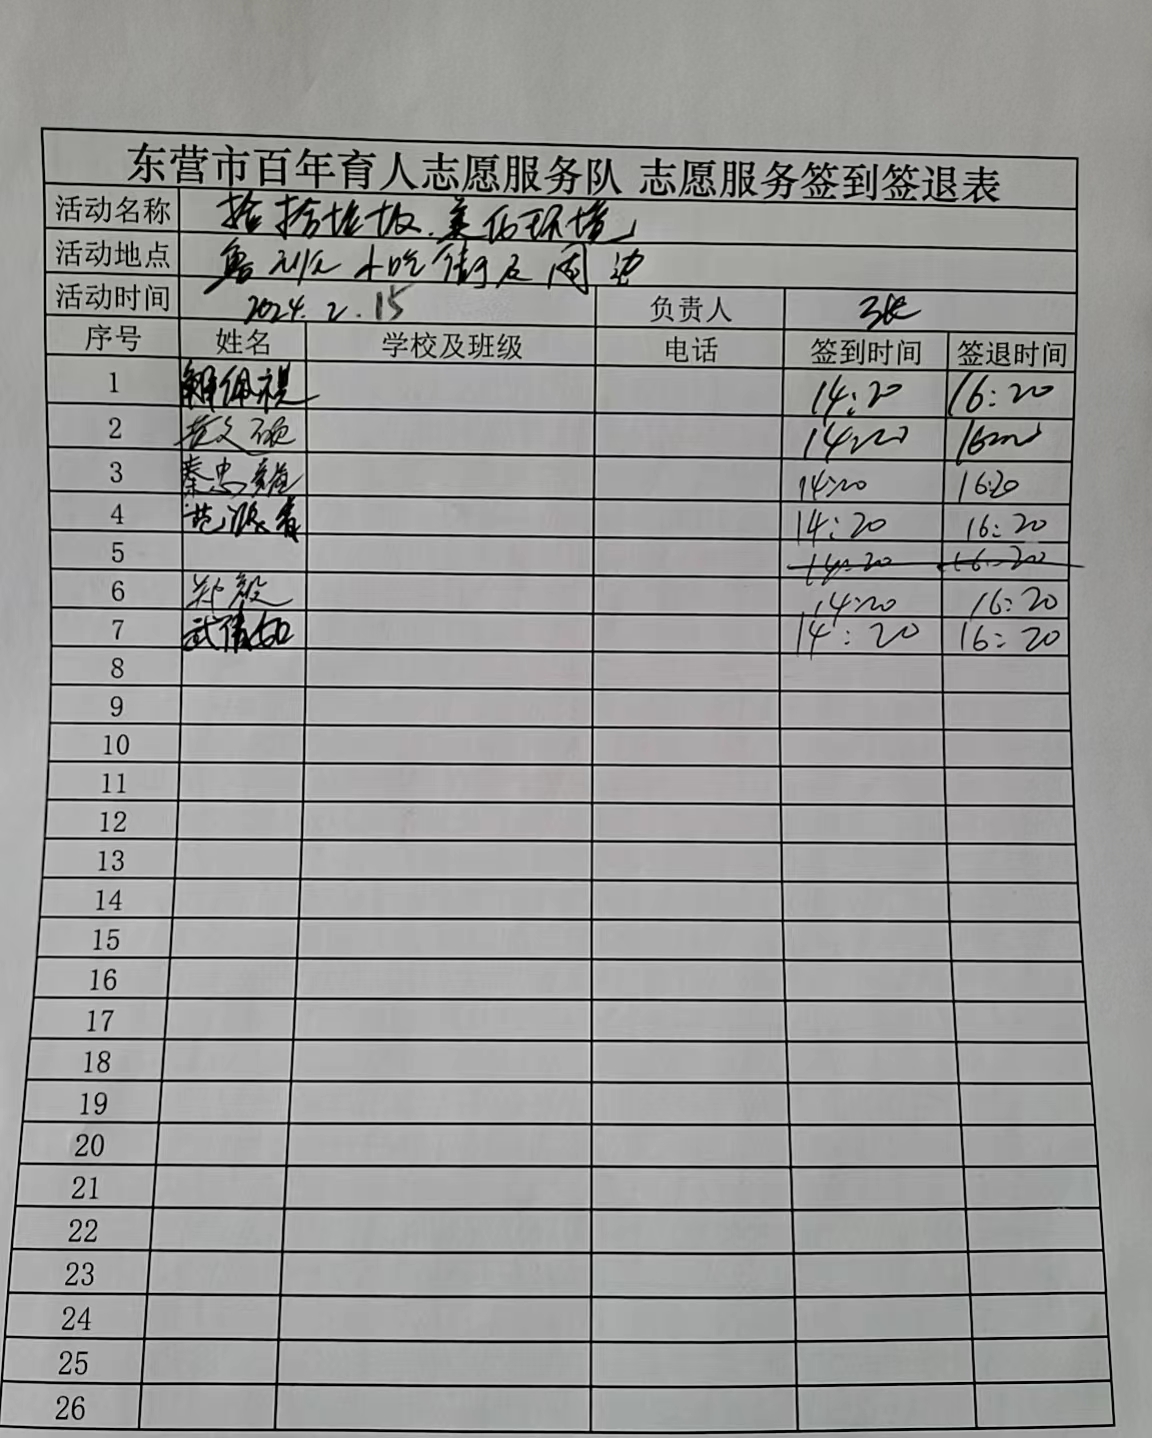 东营市百年育人志愿服务队 志愿服务签到签退表
活动名称 捡拾垃圾.美化环境
活动地点 小吃街及周边
活动时间 2024.2.15 负责人 张
序号 姓名 学校及班级 电话 签到时间 签退时间
1 14:20 16:20
2 14:20 16:20
3 秦忠耀 14:20 16:20
4 14:20 16:20
5 14:20 16:20
6 郑毅 14:20 16:20
7 武倩如 14:20 16:20
8
9
10
11
12
13
14
15
16
17
18
19
20
21
22
23
24
25
26